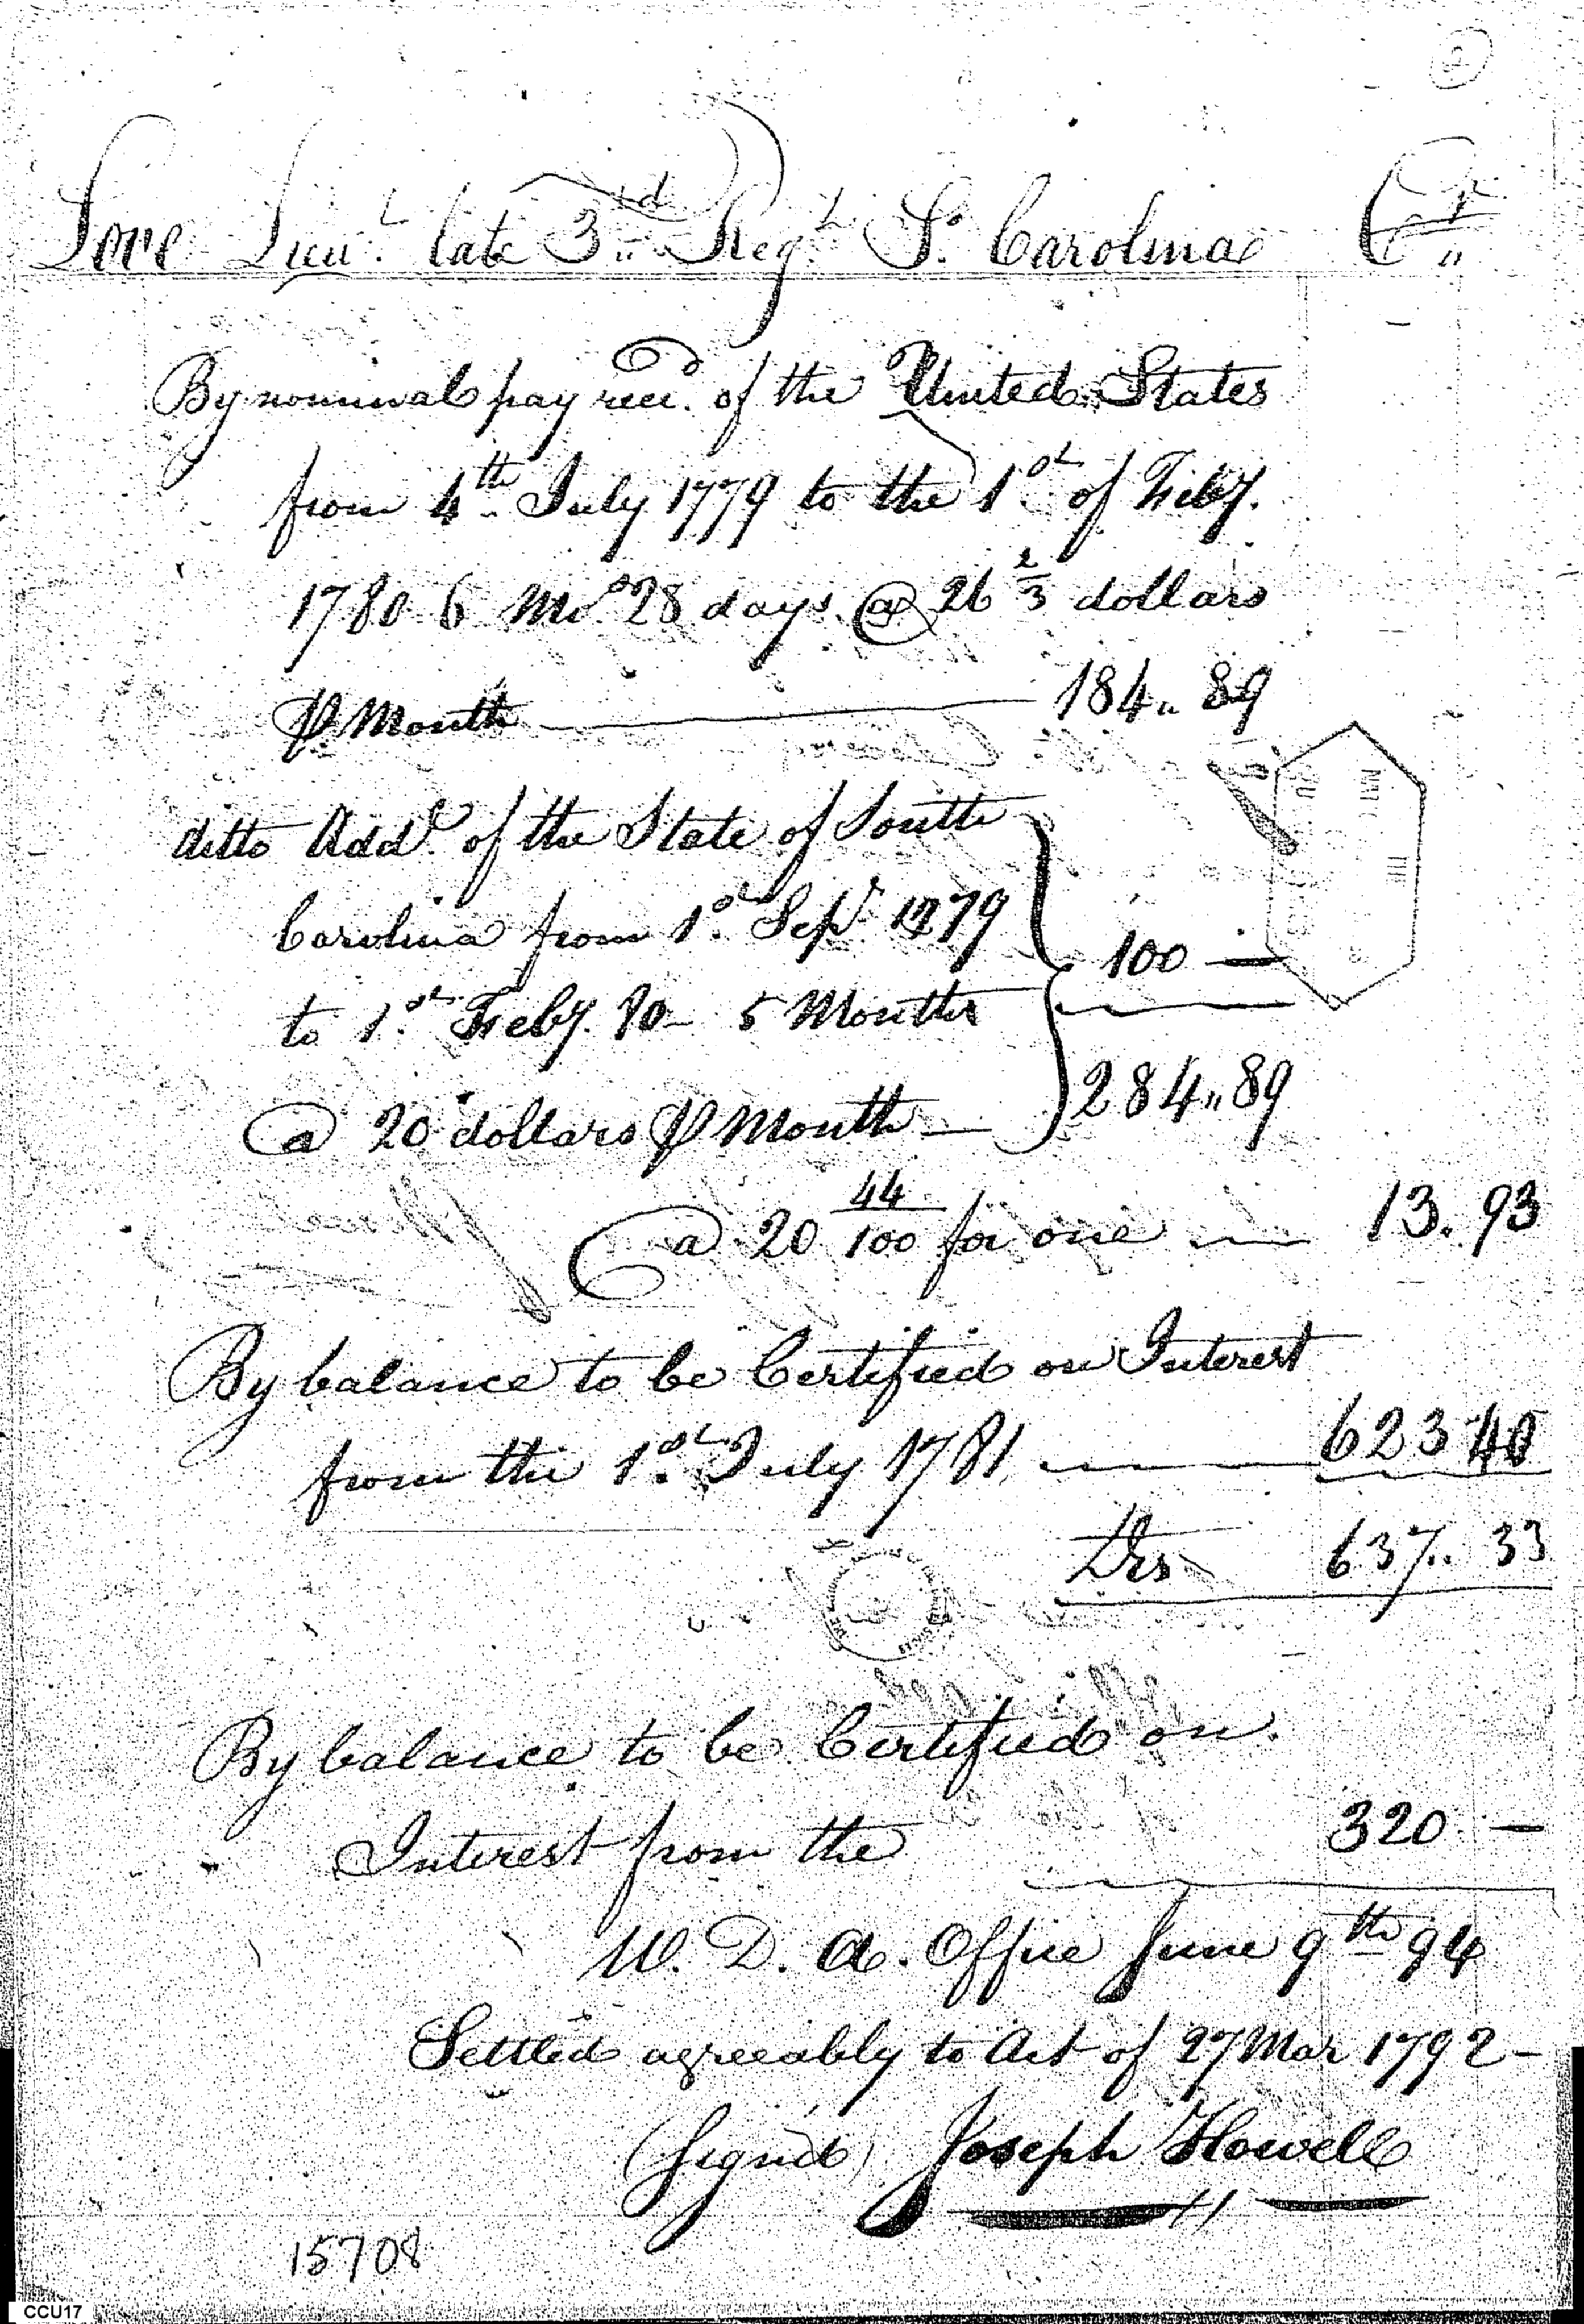 Love Lieut. late 3rd Regt So. Carolina Cr
By nominal pay recd. of the United States
from 4th July 1779 to the 1st of Feby.
1780 6 Mos 28 days @ 26 2/3 dollars
⅌ Month 184.. 89
ditto Addl. of the State of South
Carolina from 1st Sepr. 1779
100 —
to 1st Feby. 80 5 Months
@ 20 dollars ⅌ Month — 284.. 89
@ 20 44/100 for one 13. 93
By balance to be Certified on Interest
from the 1st July 1781 623 40
Drs 637.. 33
By balance to be Certified on
Interest from the 320 —
W. D. A. Office June 9th 94
Settled agreeably to Act of 27 Mar 1792 —
(Signed) Joseph Howell
15708
CCU17